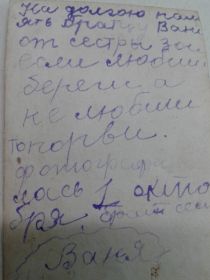 На долгою пам
ять братцу Ване
от сестры
если любиш
береги а
не любиш
то порви.
фотографи
лась 1 октя
бря
Ваня